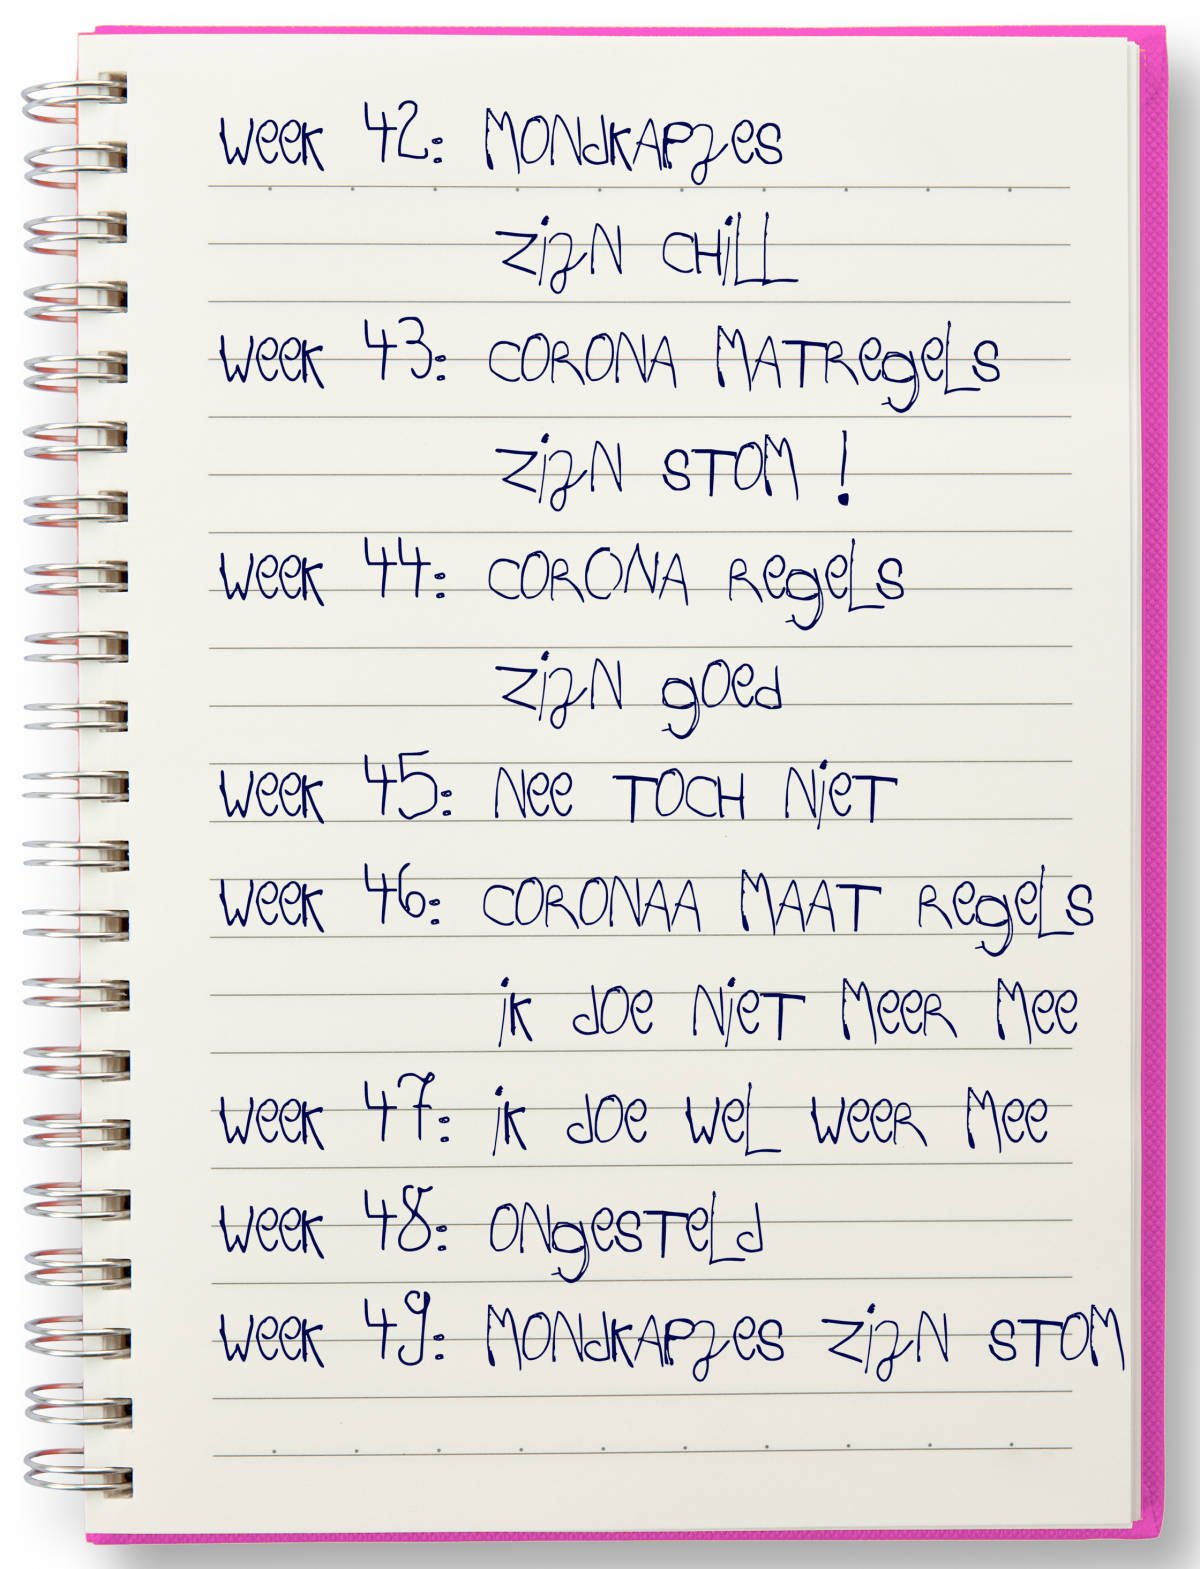 week 42: MONdKAPjes
zijN CHiLL
week 43: CORONA MATRegeLs
zijN STOM !
week 44: CORONA RegeLs
zijN goed
week 45: Nee TOCH NieT
week 46: CORONAA MAAT RegeLs
ik doe NieT MeeR Mee
week 47: ik doe weL weeR Mee
week 48: ONgesTeLd
week 49: MONdKAPjes zijN STOM